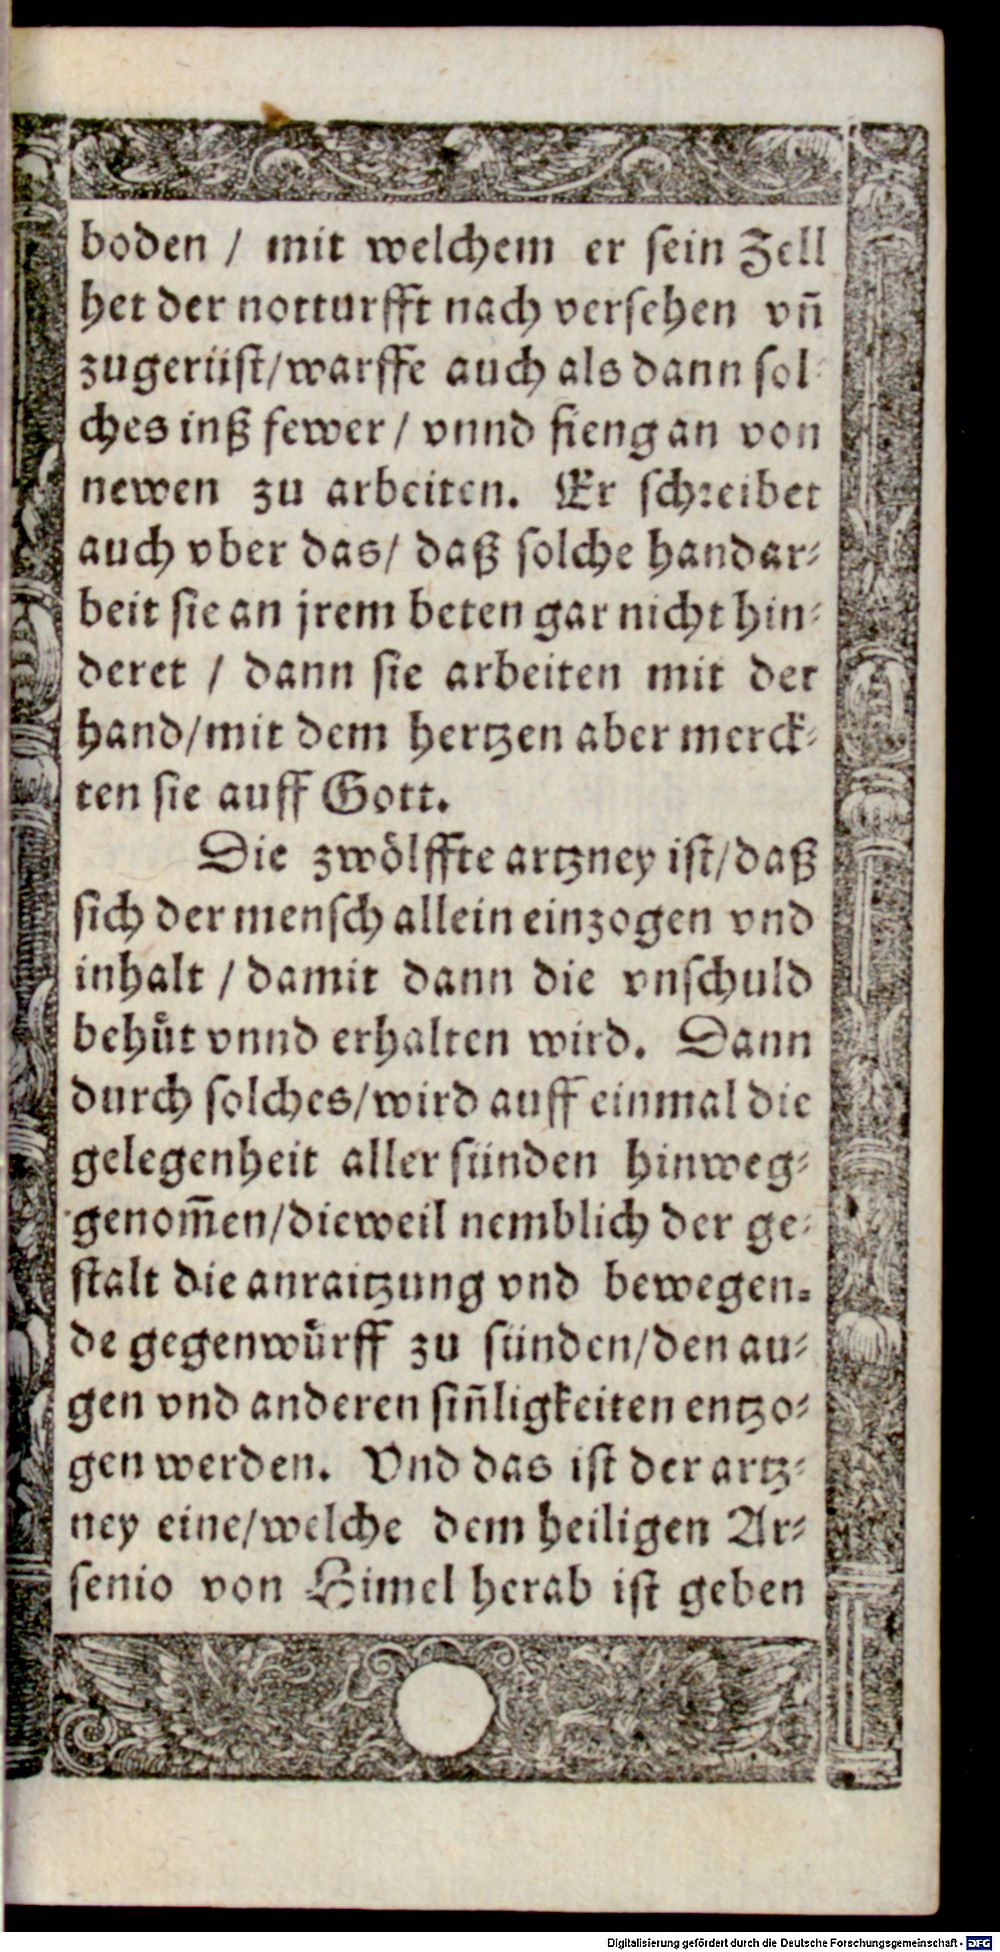 boden / mit welchem er sein Zell
het der notturfft nach versehen vn̄
zugerüst/warffe auch als dann sol-
ches inß fewer / vnnd fieng an von
newen zu arbeiten. Er schꝛeibet
auch vber das/ daß solche handar-
beit sie an jrem beten gar nicht hin-
deret / dann sie arbeiten mit der
hand/mit dem hertzen aber merck-
ten sie auff Gott.
Die zwölffte artzney ist/daß
sich der mensch allein einzogen vnd
inhalt / damit dann die vnschuld
behuͤt vnnd erhalten wird. Dann
durch solches/wird auff einmal die
gelegenheit aller sünden hinweg-
genom̄en/dieweil nemblich der ge-
stalt die anraitzung vnd bewegen-
de gegenwuͤrff zu sünden/den au-
gen vnd anderen sin̄ligkeiten entzo-
gen werden. Vnd das ist der artz-
ney eine/welche dem heiligen Ar-
senio von Himel herab ist geben
Digitalisierung gefördert durch die Deutsche Forschungsgemeinschaft - DFG